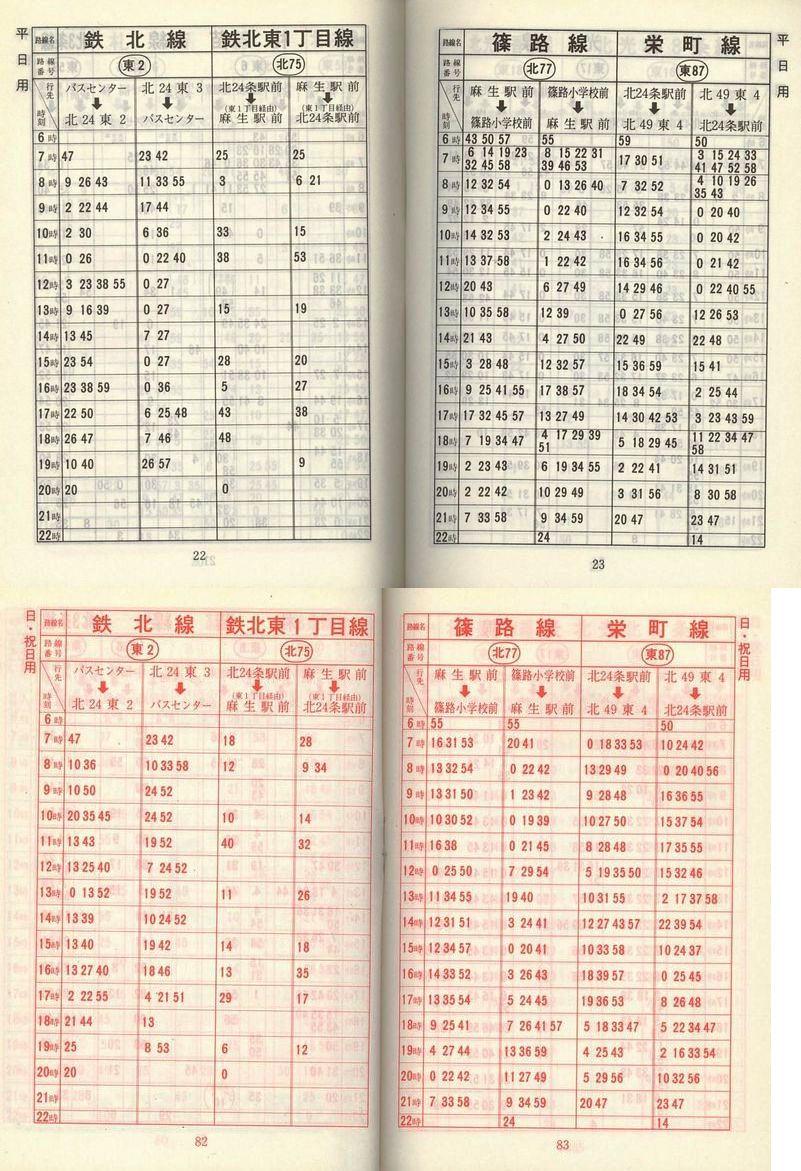 平日用
路線名 鉄北線 鉄北東1丁目線
路線番号 東2 北75
行先 バスセンター 北24東3 北24条駅前 麻生駅前
(東1丁目経由) (東1丁目経由)
時刻 北24東2 バスセンター 麻生駅前 北24条駅前
6時
7時 47 23 42 25 25
8時 9 26 43 11 33 55 3 6 21
9時 2 22 44 17 44
10時 2 30 6 36 33 15
11時 0 26 0 22 40 38 53
12時 3 23 38 55 0 27
13時 9 16 39 0 27 15 19
14時 13 45 7 27
15時 23 54 0 27 28 20
16時 23 38 59 0 36 5 27
17時 22 50 6 25 48 43 38
18時 26 47 7 46 48
19時 10 40 26 57 9
20時 20 0
21時
22時
22
平日用
路線名 篠路線 栄町線
路線番号 北77 東87
行先 麻生駅前 篠路小学校前 北24条駅前 北49東4
時刻 篠路小学校前 麻生駅前 北49東4 北24条駅前
6時 43 50 57 55 59 50
7時 6 14 19 23 8 15 22 31 17 30 51 3 15 24 33
32 45 58 39 46 53 41 47 52 58
8時 12 32 54 0 13 26 40 7 32 52 4 10 19 26
35 43
9時 12 34 55 0 22 40 12 32 54 0 20 40
10時 14 32 53 2 24 43 16 34 55 0 20 42
11時 13 37 58 1 22 42 16 34 56 0 21 42
12時 20 43 6 27 49 14 29 46 0 22 40 55
13時 10 35 58 12 39 0 27 56 12 26 53
14時 21 43 4 27 50 22 49 22 48
15時 3 28 48 12 32 57 15 36 59 15 41
16時 9 25 41 55 17 38 57 18 34 54 2 25 44
17時 17 32 45 57 13 27 49 14 30 42 53 3 23 43 59
18時 7 19 34 47 4 17 29 39 5 18 29 45 11 22 34 47
51 58
19時 2 23 43 6 19 34 55 2 22 41 14 31 51
20時 2 22 42 10 29 49 3 31 56 8 30 58
21時 7 33 58 9 34 59 20 47 23 47
22時 24 14
23
日・祝日用
路線名 鉄北線 鉄北東1丁目線
路線番号 東2 北75
行先 バスセンター 北24東3 北24条駅前 麻生駅前
(東1丁目経由) (東1丁目経由)
時刻 北24東2 バスセンター 麻生駅前 北24条駅前
6時
7時 47 23 42 18 28
8時 10 36 10 33 58 12 9 34
9時 10 50 24 52
10時 20 35 45 24 52 10 14
11時 13 43 19 52 40 32
12時 13 25 40 7 24 52
13時 0 13 52 19 52 11 26
14時 13 39 10 24 52
15時 13 40 19 42 14 18
16時 13 27 40 18 46 13 35
17時 2 22 55 4 21 51 29 17
18時 21 44 13
19時 25 8 53 6 12
20時 20 0
21時
22時
82
日・祝日用
路線名 篠路線 栄町線
路線番号 北77 東87
行先 麻生駅前 篠路小学校前 北24条駅前 北49東4
時刻 篠路小学校前 麻生駅前 北49東4 北24条駅前
6時 55 55 50
7時 16 31 53 20 41 0 18 33 53 10 24 42
8時 13 32 54 0 22 42 13 29 49 0 20 40 56
9時 13 31 50 1 23 42 9 28 48 16 36 55
10時 10 30 52 0 19 39 10 27 50 15 37 54
11時 16 38 0 21 45 8 28 48 17 35 55
12時 0 25 50 7 29 54 5 19 35 50 15 32 46
13時 11 34 55 19 40 10 31 55 2 17 37 58
14時 12 31 51 3 24 41 12 27 43 57 22 39 54
15時 12 34 57 0 20 41 10 33 58 10 24 37
16時 14 33 52 3 26 43 18 39 57 0 25 45
17時 13 35 54 5 24 45 19 36 53 8 26 48
18時 9 25 41 7 26 41 57 5 18 33 47 5 22 34 47
19時 4 27 44 13 36 59 4 25 43 2 16 33 54
20時 0 22 42 11 27 49 5 29 56 10 32 56
21時 7 33 58 9 34 59 20 47 23 47
22時 24 14
83